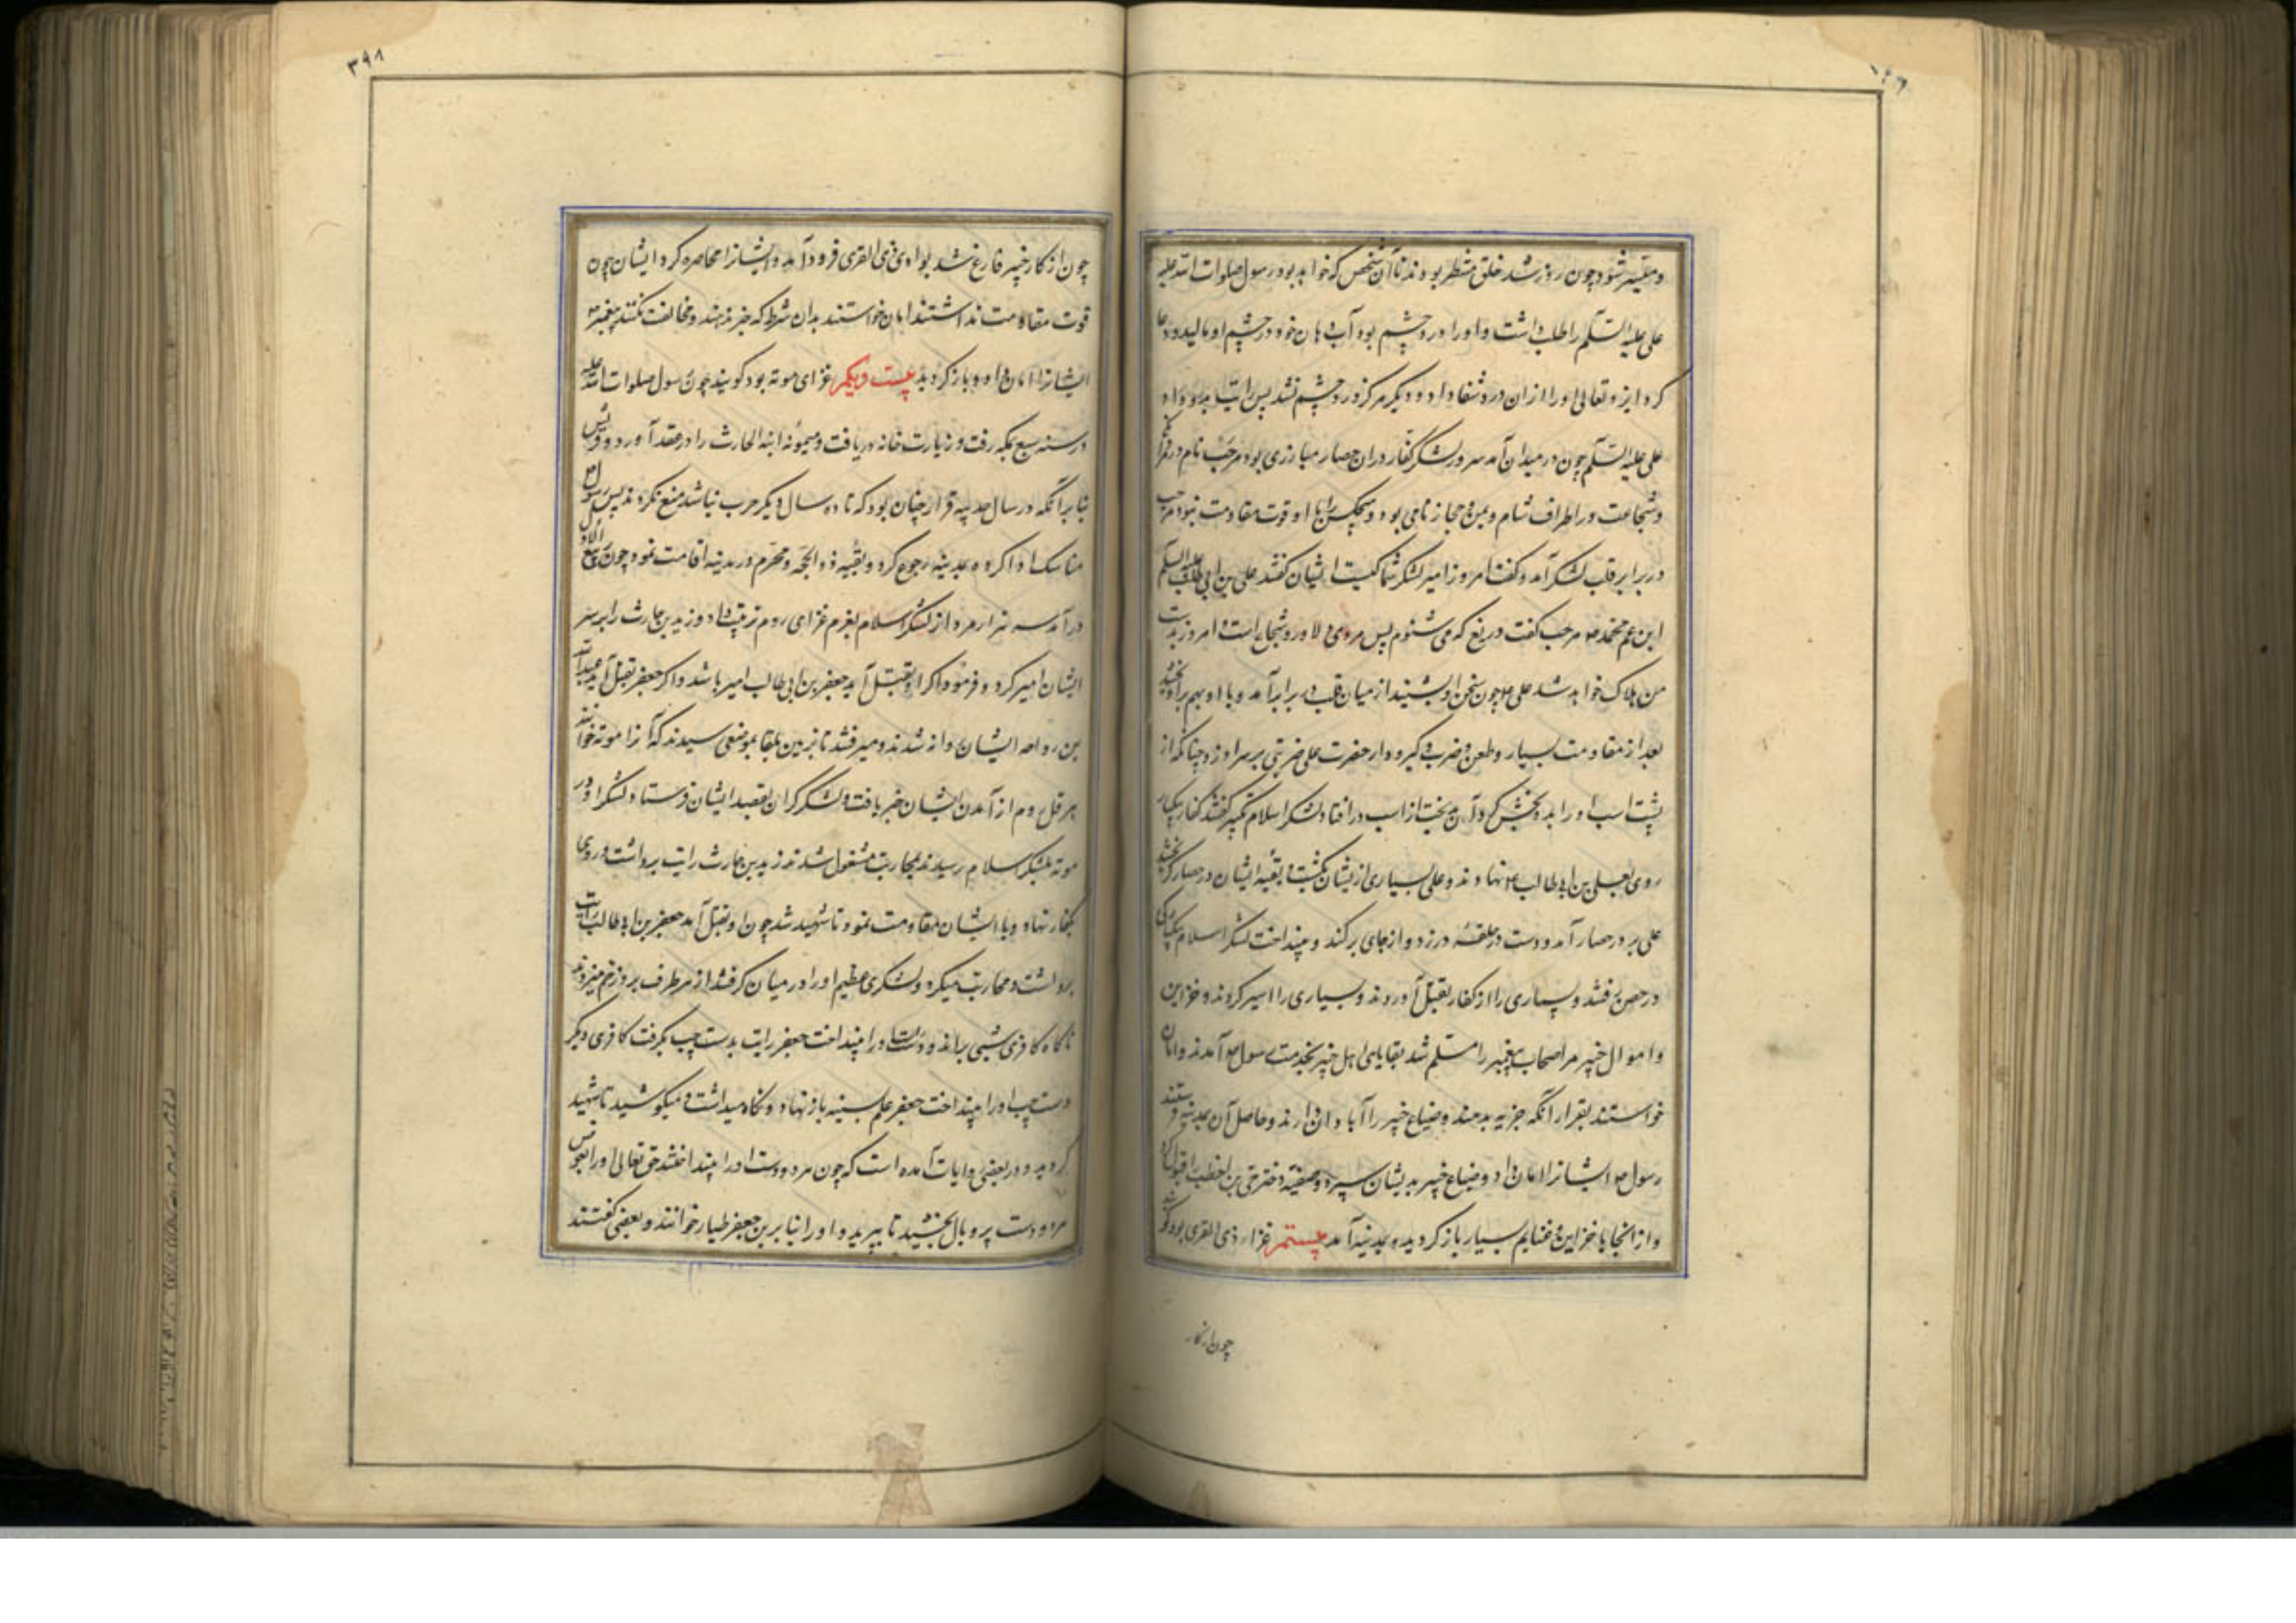 و میسر شود چون روز شد خلق منتظر بودند تا آن شخص که خواهد بود رسول صلوات الله علیه
علی علیه السلم را طلب داشت و او را درد چشم بود آب دهان خود در چشم او مالید و دعا
کرد ایزد تعالی او را از آن درد شفا داد و دیگر هرگز درد چشم نشد پس رایت بدو داد
علی علیه السلم چون در میدان آمد سرور لشکر کفار در آن حصار مبارزی بود مرحب نام در
و شجاعت در اطراف شام و یمن و حجاز نامی بود و هیچکس را با او قوت مقاومت نبود مرحب
در برابر قلب لشکر آمد و کفت امروز امیر لشکر شما کیست ایشان کفتند علی بن ابی طالب علیه السلم
ابن عم محمد مرحب کفت دریغ که می شنوم پس مردی دلاور و شجاع است امروز بدست
من هلاک خواهد شد علی چون سخن او بشنید از میان قلب در برابر آمد و با او بهم برآویختند
بعد از مقاومت بسیار و طعن و ضرب و کیرودار حضرت علی ضربتی بر سر او زد چنانکه از
پشت اسب او را بدو بخش کرد آن بدبخت از اسب در افتاد لشکر اسلام تکبیر کفتند کفار بیکبار
روی بعلی بن ابی طالب نهادند و علی بسیاری از یشان بکشت و بقیه ایشان در حصار کریختند
علی بر در حصار آمد و دست در حلقه در زد و از جای برکند و بینداخت لشکر اسلام بیکبارکی
در حصن رفتند و بسیاری را از کفار بقتل آوردند و بسیاری را اسیر کردند و خزاین
و اموال خیبر مر اصحاب پیغمبر را مسلم شد بقایای اهل خیبر بخدمت رسول آمدند و امان
خواستند بقرار آنکه جزیه بدهند و ضیاع خیبر را آبادان دارند و حاصل آن بمدینه فرستند
رسول ایشانرا امان داد و ضیاع خیبر بدیشان سپرد و صفیه دختر حی بن اخطب را
و از انجا با خزاین و غنایم بسیار باز کردیده بمدینه آمد بیستم غزاء ذی القری بود
چون از کار
۳۹۸
چون از کار خیبر فارغ شد بوادی ذی القری فرود آمد و ایشانرا محاصره کرد ایشان چون
قوت مقاومت نداشتند امان خواستند بدان شرط که جزیه بدهند و مخالفت نکنند پیغمبر
ایشانرا امان داد و باز کردید بیست و یکم غزای موته بود کویند چون رسول صلوات الله علیه
در سنه سبع بمکه رفت و زیارت خانه دریافت و میمونه ابنة الحارث را در عقد آورد و قریش
بنا بر آنکه در سال حدیبیه قرار چنان بود که تا ده سال دیکر حرب نباشد منع نکردند پس رسول
مناسک ادا کرده بمدینه رجوع کرد و بقیه ذوالحجه و محرم در مدینه اقامت نمود چون ربیع الاول
در آمد سه هزار مرد از لشکر اسلام بعزم غزای روم ترتیب داد و زید بن حارث را بر سر
ایشان امیر کرد و فرمود اکر او بقتل آید جعفر بن ابی طالب امیر باشد و اکر جعفر بقتل آید عبدالله
بن رواحه ایشان روانه شدند و میرفتند تا بزمین بلقا بموضعی رسیدند که آنرا موته خوانند
هرقل روم از آمدن ایشان خبر یافت و لشکر کران بقصد ایشان فرستاد لشکر او در
موته بلشکر اسلام رسیدند بمحاربت مشغول شدند زید بن حارث رایت برداشت و روی با
کفار نهاد و با ایشان مقاومت نمود تا شهید شد چون او بقتل آمد جعفر بن ابی طالب رایت
برداشت و محاربت میکرد و لشکری عظیم او را در میان کرفتند از هر طرف برو زخم میزدند
ناکاه کافری شمشیری براند و دست راست او را بینداخت جعفر رایت بدست چپ بکرفت کافری دیکر
دست چپ او را بینداخت جعفر علم بسینه باز نهاد و نکاه میداشت و میکوشید تا شهید
کردید و در بعضی روایات آمده است که چون هر دو دست او را بینداختند حق تعالی او را بعوض
هر دو دست پر و بال بخشید تا بپرید و او را بنا برین جعفر طیار خوانند و بعضی کفتند